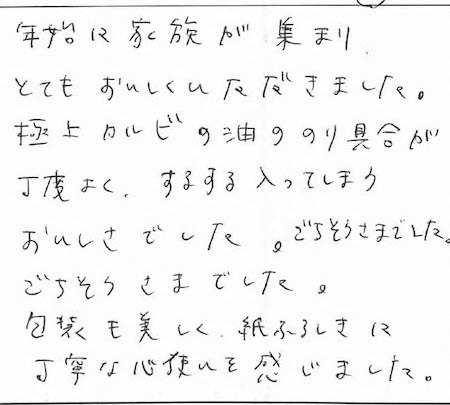 年始に家族が集まり
とてもおいしくいただきました。
極上カルビの油ののり具合が
丁度よく、するする入ってしまう
おいしさでした。ごちそうさまでした。
ごちそうさまでした。
包装も美しく、紙ふろしきに
丁寧な心使いを感じました。